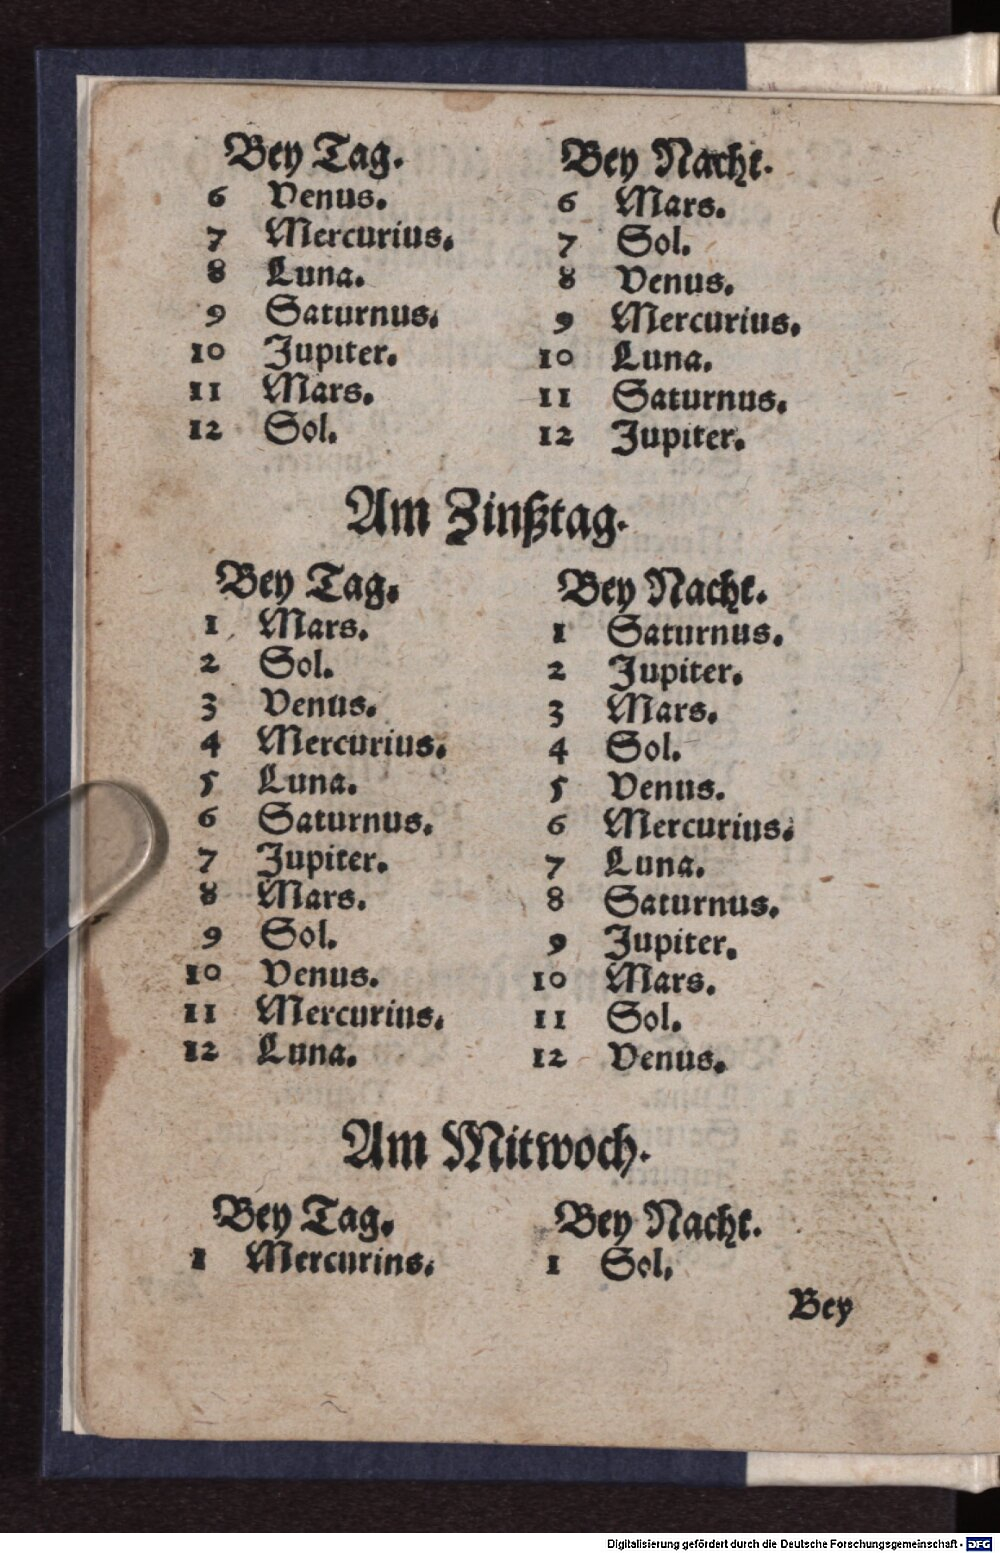 Bey Tag. Bey Nacht.
6 Venus. 6 Mars.
7 Mercurius. 7 Sol.
8 Luna. 8 Venus.
9 Saturnus. 9 Mercurius.
10 Jupiter. 10 Luna.
11 Mars. 11 Saturnus.
12 Sol. 12 Jupiter.
Am Zinßtag.
Bey Tag. Bey Nacht.
1 Mars. 1 Saturnus.
2 Sol. 2 Jupiter.
3 Venus. 3 Mars.
4 Mercurius. 4 Sol.
5 Luna. 5 Venus.
6 Saturnus. 6 Mercurius.
7 Jupiter. 7 Luna.
8 Mars. 8 Saturnus.
9 Sol. 9 Jupiter.
10 Venus. 10 Mars.
11 Mercurius. 11 Sol.
12 Luna. 12 Venus.
Am Mitwoch.
Bey Tag. Bey Nacht.
1 Mercurins. 1 Sol.
Bey
Digitalisierung gefördert durch die Deutsche Forschungsgemeinschaft - DFG